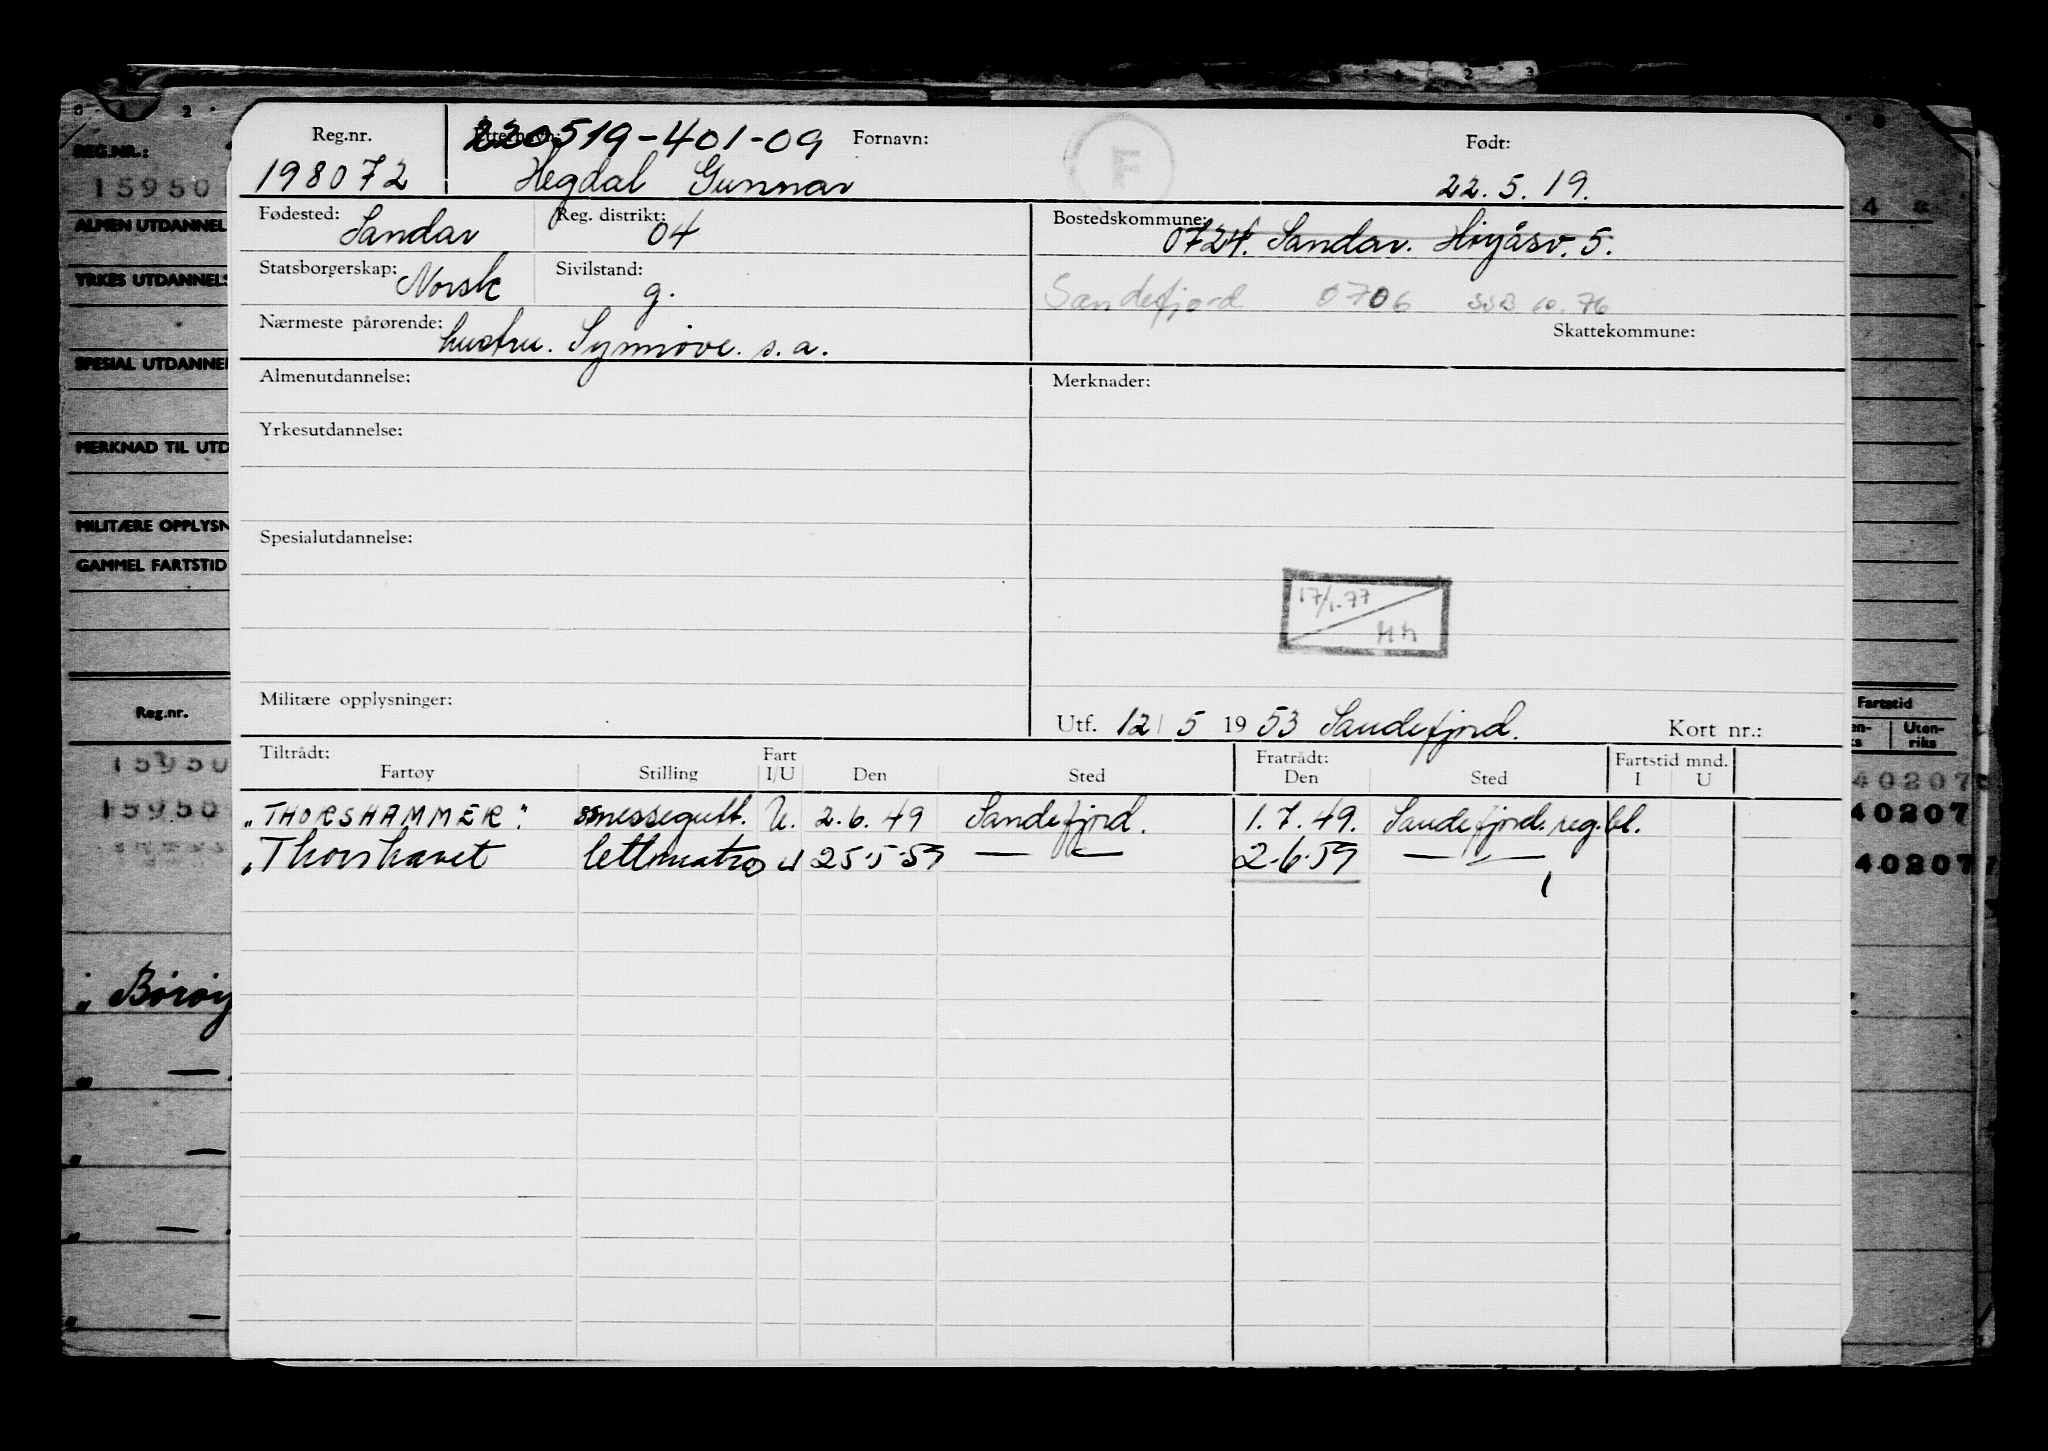 REG.NR.:
15950
ALMEN UTDANNEL
YRKES UTDANNELS
SPESIAL UTDANNEL
MERKNAD TIL UTD
MILITÆRE OPPLYSN
GAMMEL FARTSTID
Reg.nr.
15950
15950
„ Børøy
„ —
„ —
„ —
„ —
Reg.nr. Etternavn: 220519-401-09 Fornavn: F Født:
198072 Hegdal Gunnar 22.5.19.
Fødested: Sandar Reg. distrikt: 04 Bostedskommune: 0724. Sandar. Høyåsv. 5.
Statsborgerskap: Norsk Sivilstand: g. Sandefjord 0706 SSB 10.76
Nærmeste pårørende: hustru. Synnøve. s.a. Skattekommune:
Almenutdannelse: Merknader:
Yrkesutdannelse:
Spesialutdannelse:
17/1.77
Militære opplysninger:
Utf. 12/5 1953 Sandefjord. Kort nr.:
Tiltrådt: Fart Fratrådt: Fartstid mnd.
Fartøy Stilling I/U Den Sted Den Sted I U
„THORSHAMMER". messegutt. U. 2.6.49 Sandefjord. 1.7.49. Sandefjord. reg.bl.
„Thorshavet lettmatros U 25.5.59 — — 2.6.59 — —
Fartstid
Uten-
riks
40207
40207
40207